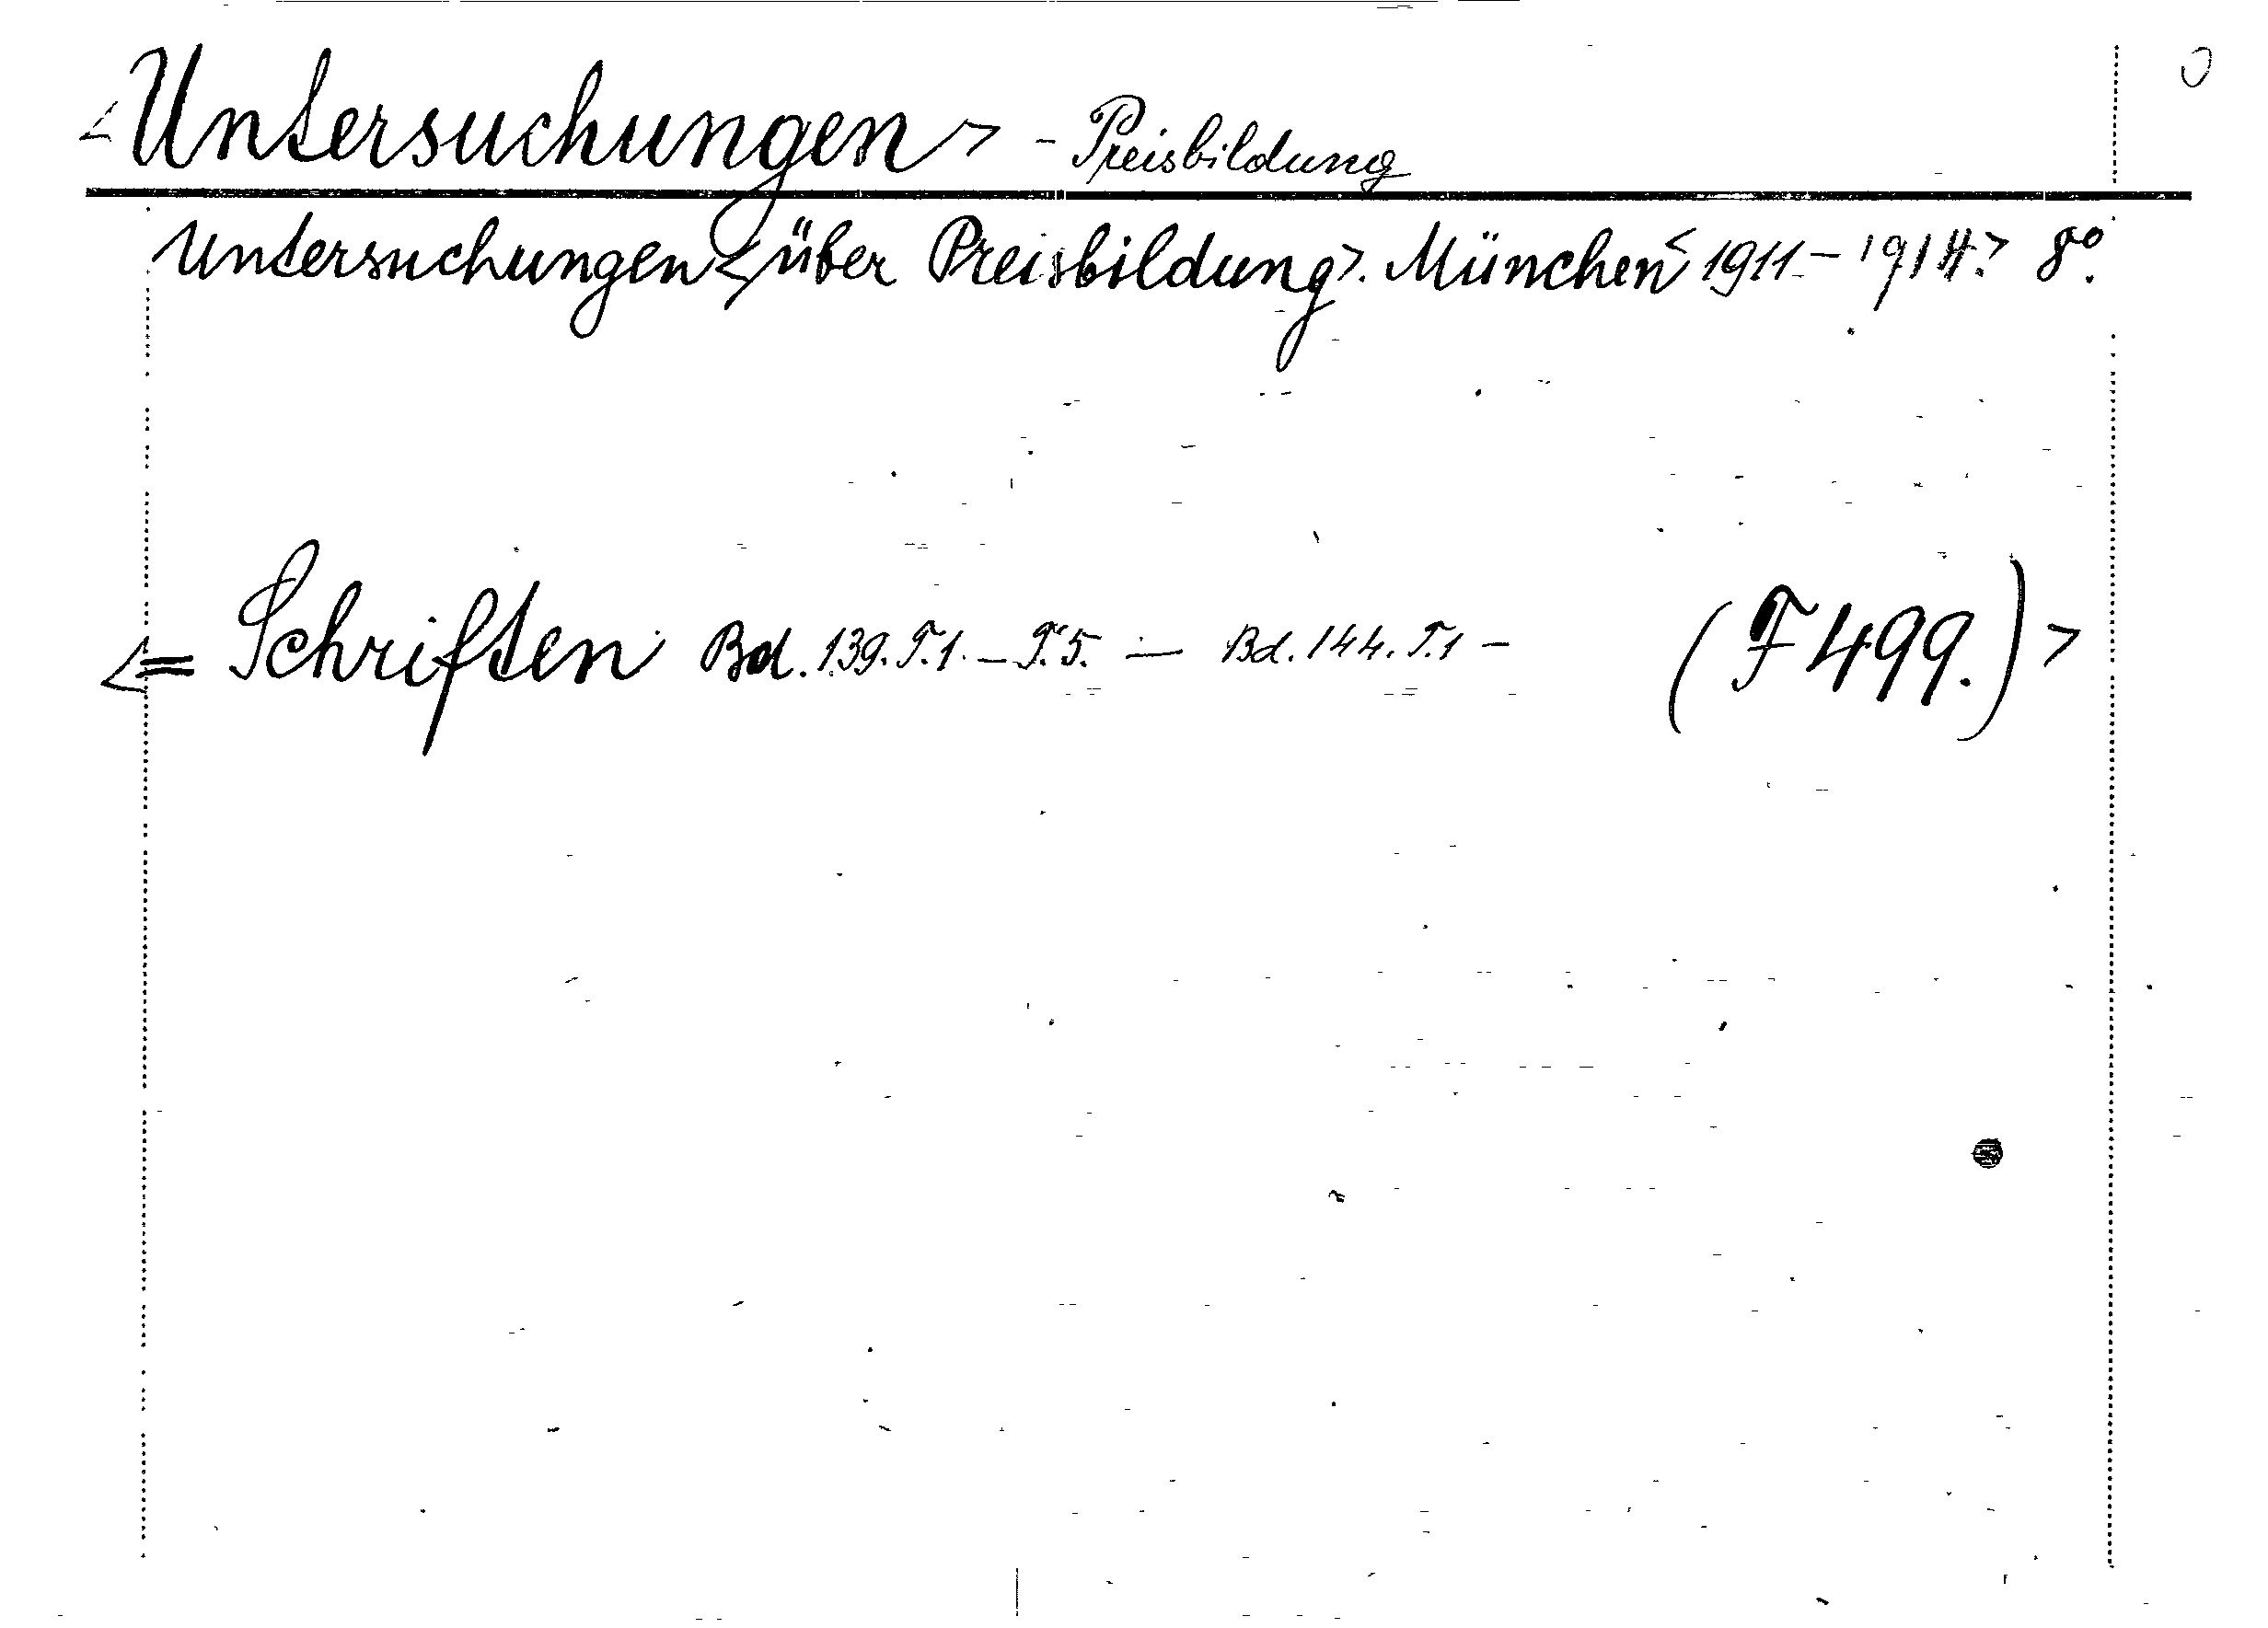 <Untersuchungen> - Preisbildung
Untersuchungen <über Preisbildung>. München < 1911 - 1914.> 8°.
<= Schriften Bd. 139. T.1. - T.5. — Bd. 144. T.1 - (F 499.)>